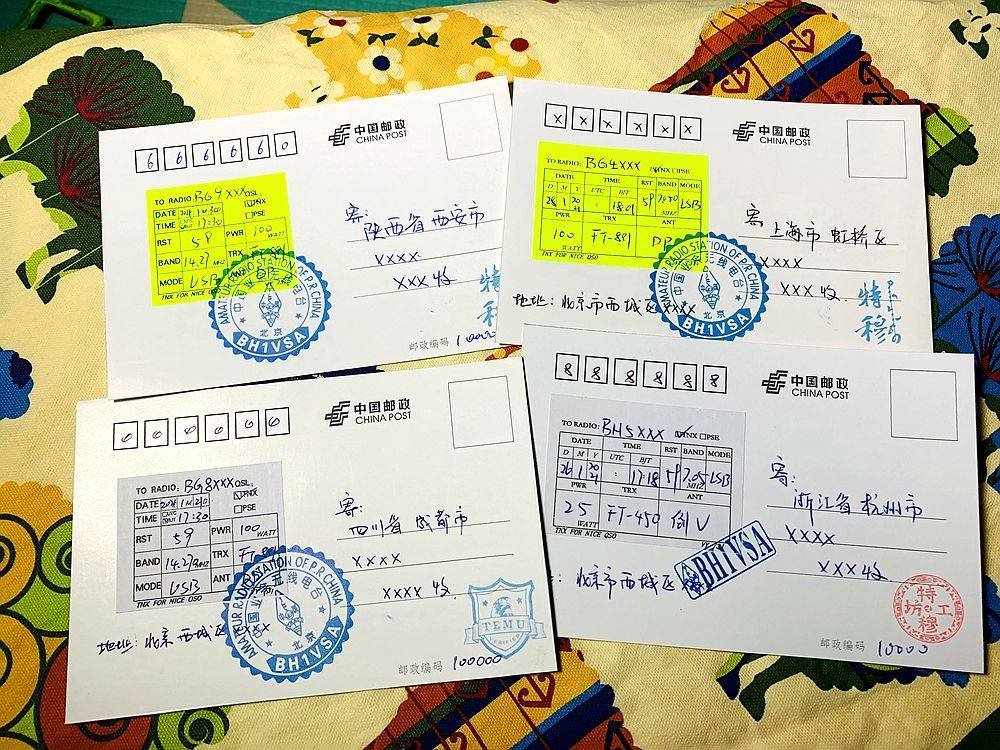 666660
中国邮政
CHINA POST
TO RADIO: BG9XXX QSL:
☑TNX
□PSE
DATE
TIME 17:30
RST 59 PWR 100 WATT
BAND 14.27 MHZ TRX
MODE USB ANT
TNX FOR NICE QSO
寄:
陕西省 西安市
XXXX
XXX 收
特
穆
AMATEUR RADIO STATION OF P.R.CHINA
中国业余无线电台
北京
BH1VSA
邮政编码
XXXXXX
中国邮政
CHINA POST
TO RADIO: BG4XXX ☑TNX □PSE
DATE TIME RST BAND MODE
D M Y UTC BJT
28 1 2021 : 18:01 59 7.050 MHZ LSB
PWR TRX ANT
100 WATT FT-891 DP
TNX FOR NICE QSO
寄:
上海市 虹桥区
XXXX
XXX 收.
特
穆
地址: 北京市西城区XXXX
AMATEUR RADIO STATION OF P.R.CHINA
中国业余无线电台
北京
BH1VSA
000000
中国邮政
CHINA POST
TO RADIO: BG8XXX QSL:
☑TNX
□PSE
DATE
TIME 17:30
RST 59 PWR 100 WATT
BAND 14.27 MHZ TRX
MODE USB ANT
TNX FOR NICE QSO
寄:
四川省 成都市
XXXX
XXXX 收.
TEMU
地址: 北京 西城区XXXX
AMATEUR RADIO STATION OF P.R.CHINA
中国业余无线电台
北京
BH1VSA
邮政编码 100000
888888
中国邮政
CHINA POST
TO RADIO: BH5XXX ☑TNX □PSE
DATE TIME RST BAND MODE
D M Y UTC BJT
26 1 2021 : 17:18 59 7.05 MHZ LSB
PWR TRX ANT
25 WATT FT-450 倒V
TNX FOR NICE QSO
寄:
浙江省 杭州市
XXXX
XXX 收
: 北京市西城区
BH1VSA
特穆
工坊
邮政编码 10000